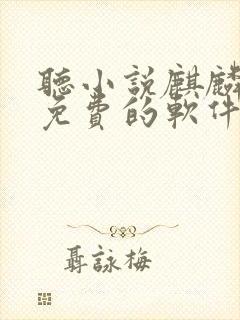 聽小說麒麟
免費的軟件
聶詠梅